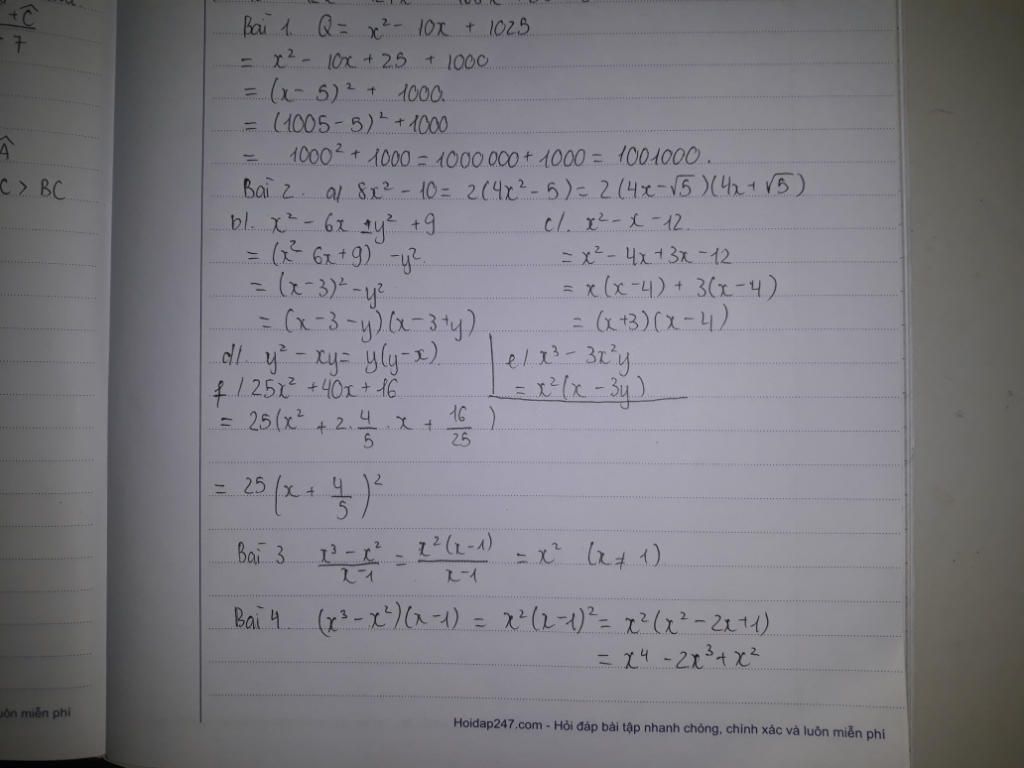 +Ĉ
7
Â
C > BC
uôn miễn phí
Bài 1. Q = x² - 10x + 1025
= x² - 10x + 25 + 1000
= (x - 5)² + 1000.
= (1005 - 5)² + 1000
= 1000² + 1000 = 1000 000 + 1000 = 1001000.
Bài 2. a/ 8x² - 10 = 2(4x² - 5) = 2(4x - √5)(4x + √5)
b/. x² - 6x - y² + 9
= (x² - 6x + 9) - y².
= (x - 3)² - y²
= (x - 3 - y)(x - 3 + y)
c/. x² - x - 12.
= x² - 4x + 3x - 12
= x(x - 4) + 3(x - 4)
= (x + 3)(x - 4)
d/. y² - xy = y(y - x).
e/ x³ - 3x²y
= x²(x - 3y)
f/ 25x² + 40x + 16
= 25(x² + 2. 4/5 . x + 16/25)
= 25(x + 4/5)²
Bài 3 x³ - x² / x - 1 = x²(x - 1) / x - 1 = x² (x ≠ 1)
Bài 4. (x³ - x²)(x - 1) = x²(x - 1)² = x²(x² - 2x + 1)
= x⁴ - 2x³ + x²
Hoidap247.com - Hỏi đáp bài tập nhanh chóng, chính xác và luôn miễn phí